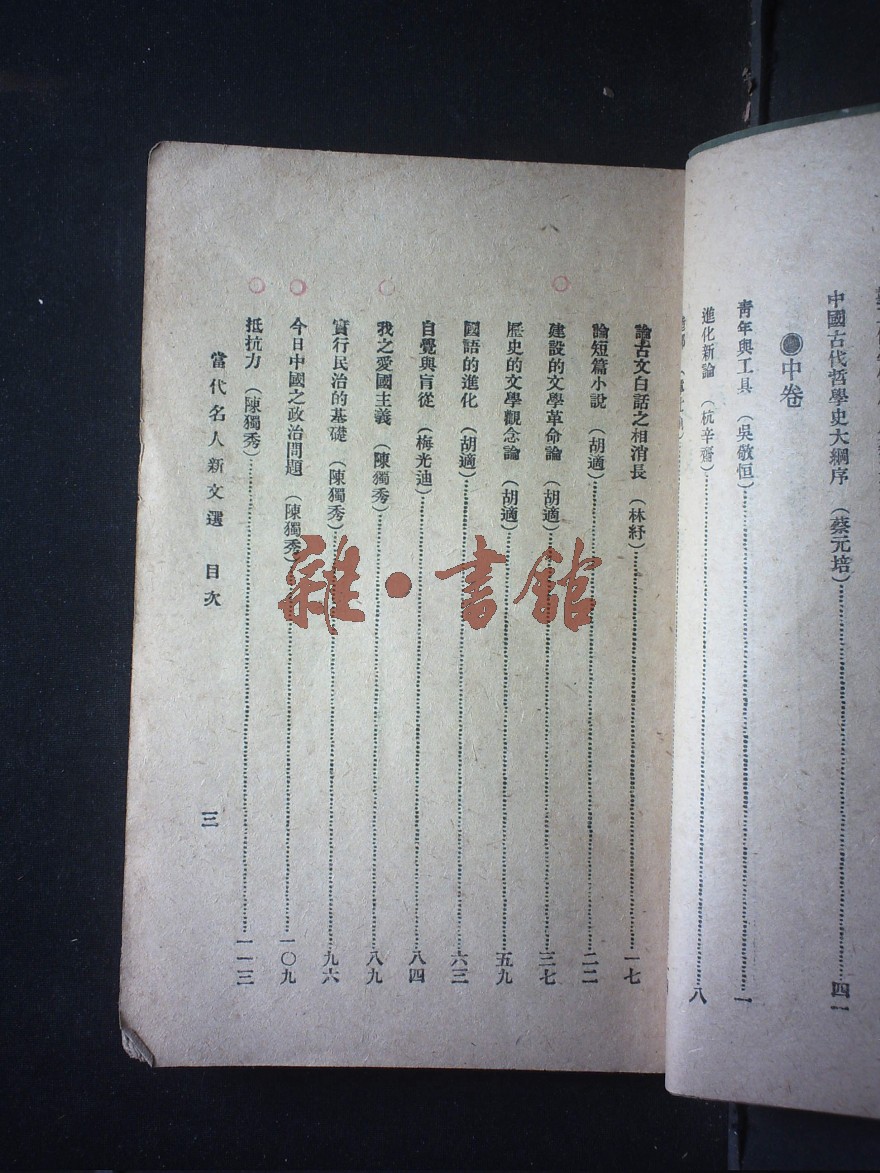 中國古代哲學史大綱序（蔡元培）…………四一
●中卷
青年與工具（吳敬恒）…………一
進化新論（杭辛齋）…………八
論古文白話之相消長（林紓）…………一七
論短篇小說（胡適）…………二二
建設的文學革命論（胡適）…………三七
歷史的文學觀念論（胡適）…………五九
國語的進化（胡適）…………六三
自覺與盲從（梅光迪）…………八四
我之愛國主義（陳獨秀）…………八九
實行民治的基礎（陳獨秀）…………九六
今日中國之政治問題（陳獨秀）…………一〇九
抵抗力（陳獨秀）…………一一三
當代名人新文選 目次
三
雜·書館